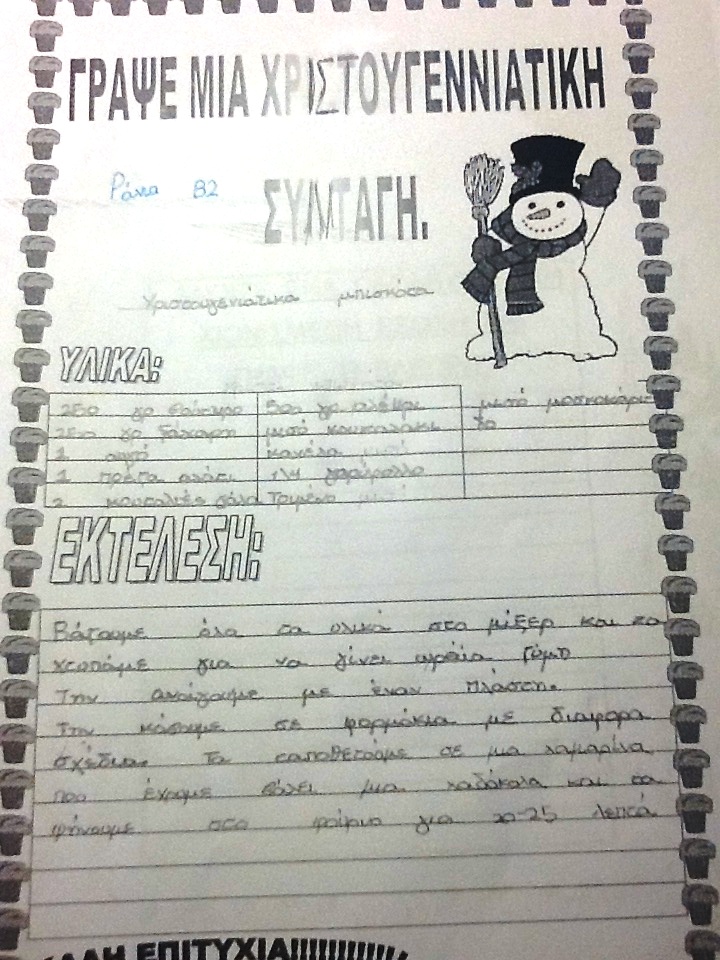 ΓΡΑΨΕ ΜΙΑ ΧΡΙΣΤΟΥΓΕΝΝΙΑΤΙΚΗ
Ράνια Β2
ΣΥΝΤΑΓΗ.
Χριστουγενιάτικα μπισκότα
ΥΛΙΚΑ:
250 γρ βούτυρο 500 γρ αλεύρι μισό μοσχοκάρι
250 γρ ζάχαρη μισό κουταλάκι δο
1 αυγό κανέλα
1 πρέζα αλάτι 1/4 γαρύφαλλο
2 κουταλιές γάλα Τριμένο
ΕΚΤΕΛΕΣΗ:
Βάζουμε όλα τα υλικά στο μίξερ και τα
χτυπάμε για να γίνει ωραία ζύμη
Την ανοίγουμε με έναν πλάστη.
Την κόβουμε σε φορμάκια με διαφορα
σχέδια. Τα τοποθετούμε σε μια λαμαρίνα,
που έχουμε βάλει μια λαδόκολα και τα
ψήνουμε στο φούρνο για 20-25 λεπτά
ΚΑΛΗ ΕΠΙΤΥΧΙΑ!!!!!!!!!!!!